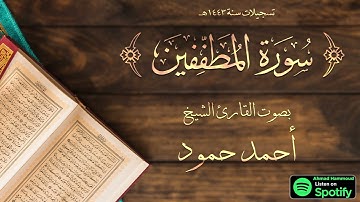 تسجيلات سنة ١٤٤٣هـ
﴿ سُورَةُ المُطَفِّفِين ﴾
بصوت القارئ الشيخ
أحمد حمود
Ahmad Hammoud
Listen on
Spotify